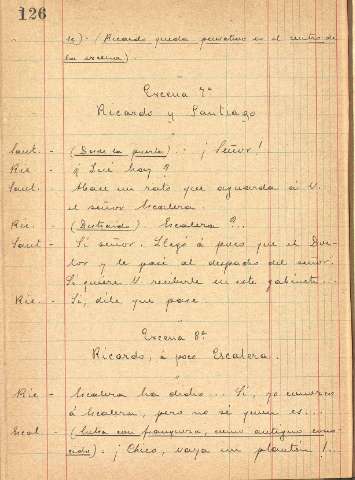 126
se). (Ricardo queda pensativo en el centro de
la escena).
Escena 7ª
Ricardo y Santiago
Sant. - (Desde la puerta). ¡Señor!
Ric. - ¿Qué hay?
Sant. - Hace un rato que aguarda á V.
el señor Escalera.
Ric. - (Distraido). Escalera?..
Sant - Si señor. Llegó á poco que el Doc-
tor y le pasé al despacho del señor.
Si quiere V. recibirle en este gabinete...
Ric. - Si, dile que pase.
Escena 8ª
Ricardo, á poco Escalera.
Ric - Escalera ha dicho... Si, yo conozco
á Escalera, pero no sé quien es...
Escal - (Entra con franqueza, como antiguo cono-
cido). ¡Chico, vaya un plantón!..